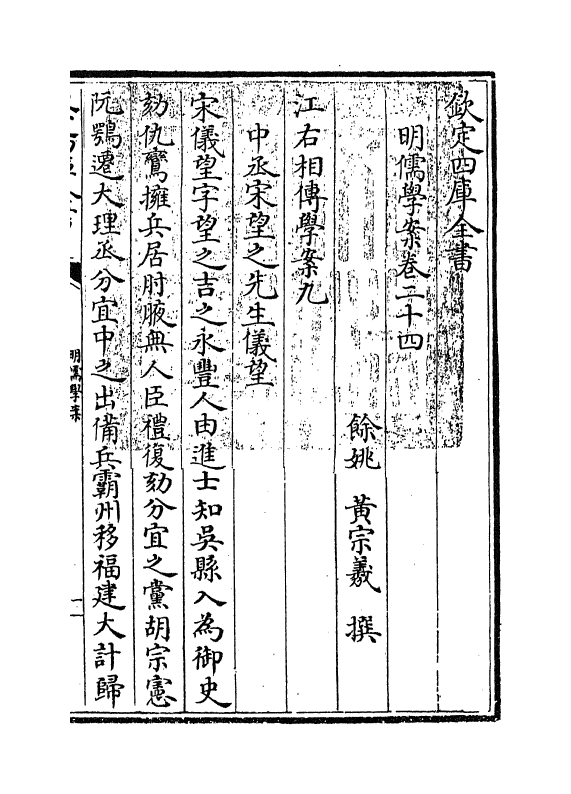 欽定四庫全書
明儒學案卷二十四
餘姚 黃宗羲 撰
江右相傳學案九
中丞宋望之先生儀望
宋儀望字望之吉之永豐人由進士知吳縣入為御史
劾仇鸞擁兵居肘腋無人臣禮復劾分宜之黨胡宗憲
阮鶚遷大理丞分宜中之出備兵霸州移福建大計歸
明儒學案
一